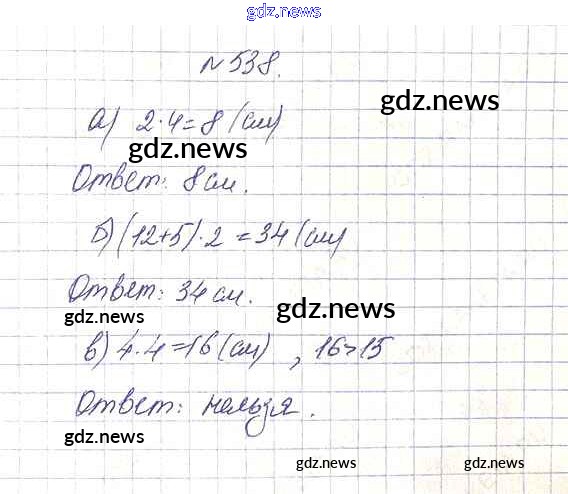 gdz.news
№ 538.
gdz.news
а) 2·4=8 (см)
gdz.news
Ответ: 8 см.
б) (12+5)·2 = 34 (см)
Ответ: 34 см.
gdz.news
gdz.news
в) 4·4=16 (см) , 16>15
Ответ: нельзя.
gdz.news
gdz.news
gdz.news